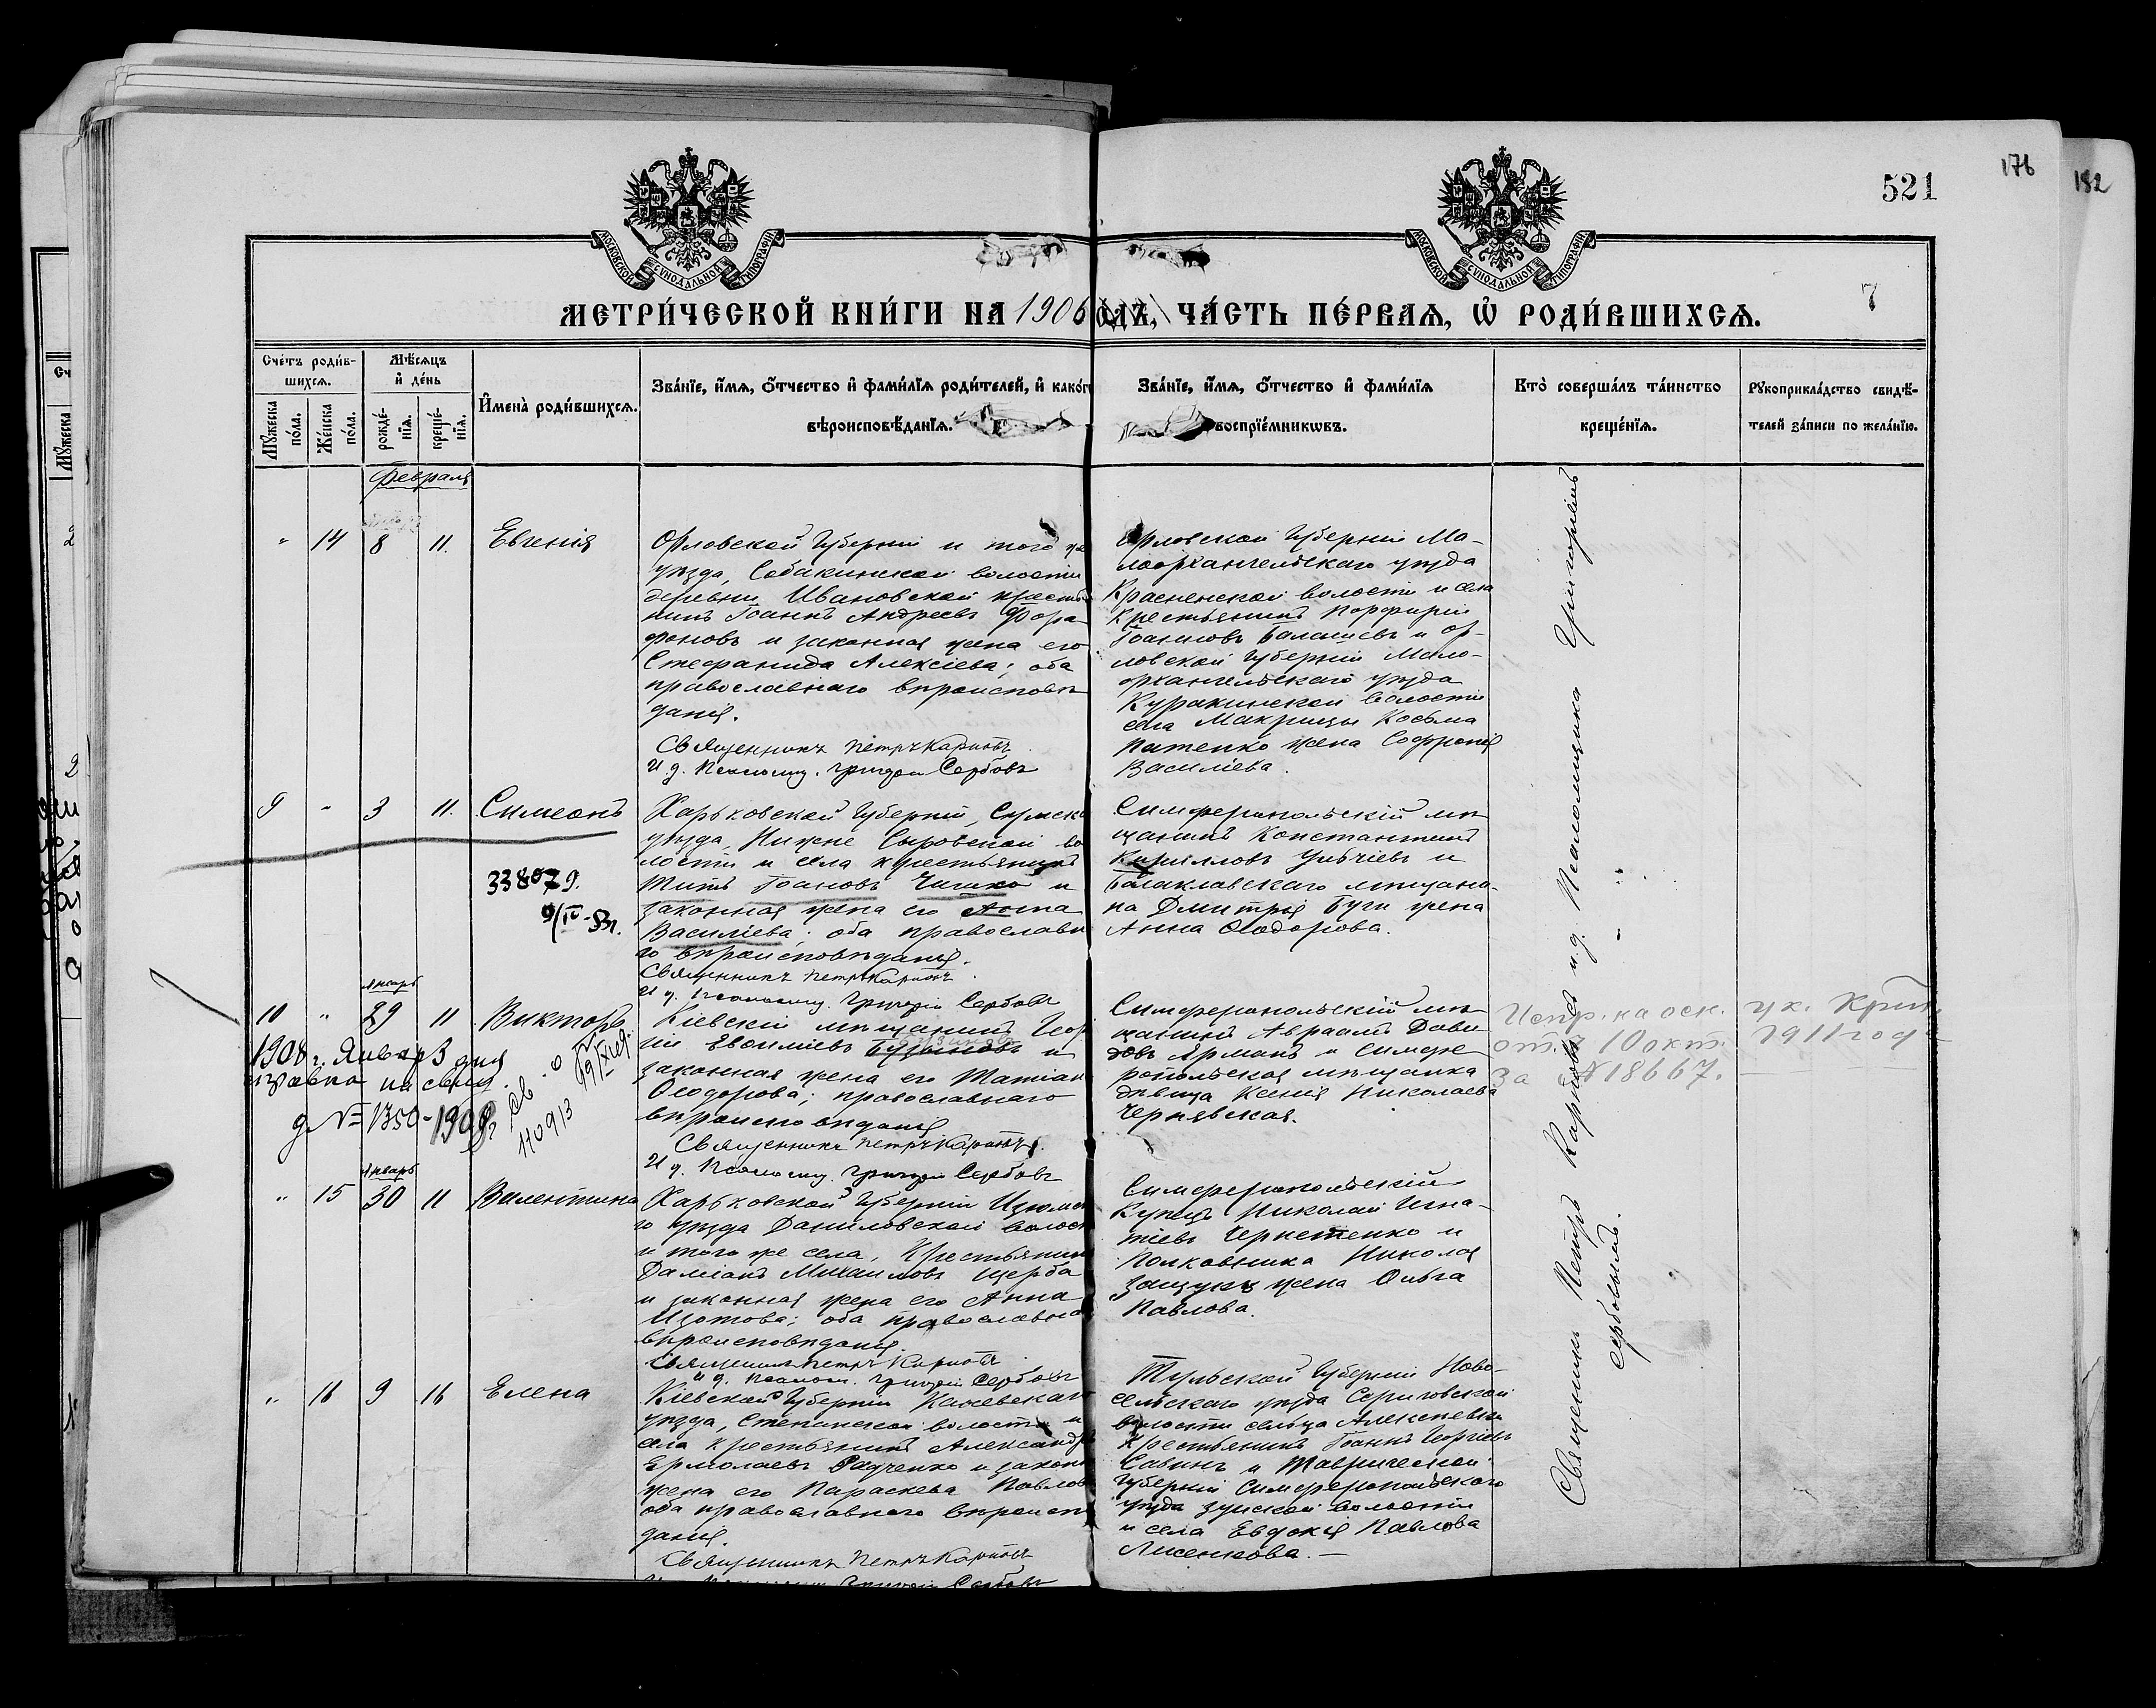 521
176
182
7
МЕТРИЧЕСКОЙ КНИГИ НА 1906 ГОДЪ, ЧАСТЬ ПЕРВАЯ, Ѡ РОДИВШИХСЯ.
Счетъ родив-
шихся.
Мужеска
пола.
Женска
пола.
Мѣсяцъ
и день
рожде-
нія.
креще-
нія.
Имена родившихся.
Званіе, имя, отчество и фамилія родителей, и каког
вѣроисповѣданія.
Званіе, имя, отчество и фамилія
воспріемниковъ.
Кто совершалъ таинство
крещенія.
Рукоприкладство свидѣ-
телей записи по желанію.
Февраль
" 14 8 11. Евгенія
Орловской Губерніи и того же
уѣзда, Собакинской волости
деревни Ивановской крестья
нинъ Іоаннъ Андреевъ Фора-
фоновъ и законная жена его
Стефанида Алексіева; оба
православнаго вѣроисповѣ
данія.
Священникъ Петръ Карповъ
И. д. Псаломщ. Григорій Сербовъ
Орловской Губерніи Ма-
лоархангельскаго уѣзда
Красненской волости и села
Крестьянинъ Порфирій
Іоанновъ Балашевъ и Ор-
ловской Губерніи Мало-
архангельскаго уѣзда
Куракинской волости
села Макрицы Косьма
жена Софронія
Василіева.
9 " 3 11. Симеонъ
33807 9.
9/IV-53г.
Харьковской Губерніи, Сумска
уѣзда, Нижне Сыроватской во
лости и села крестьянинъ
Титъ Іоановъ Чашко и
законная жена его Анна
Василіева; оба православн
го вѣроисповѣданія.
Священникъ Петръ Карповъ
И. д. Псаломщ. Григорій Сербовъ
Симферопольскій мѣ
щанинъ Константинъ
Кирилловъ и
Балаклавскаго мѣщани-
на Дмитрія жена
Анна Ѳеодорова.
Январь
10 " 29 11 Викторъ
1908 г. Январ 3 дня
д. № 1350-1908
110913
Кіевскій мѣщанинъ Геор
гій и
законная жена его Татіана
Ѳеодорова; православнаго
вѣроисповѣданія
Священникъ Петръ Карповъ.
И д. Псаломщ. Григорій Сербовъ
Симферопольскій мѣ-
щанинъ Авраамъ Дави
довъ Арманъ и Симфе
ропольская мѣщанка
дѣвица Ксенія Николаева
Чернявская.
Испр. на осн. ук.
от. 10 окт. 1911 год
за № 18667.
Январь
" 15 30 11 Валентина
Харьковской Губерніи Изюмск
го уѣзда Даниловской волост
и того же села, Крестьянин
Даміанъ Михаиловъ Щерба
и законная жена его Анна
Изотова; оба православна
вѣроисповѣданія.
Священникъ Петръ Карповъ
И д. Псалом. Григорій Сербовъ
Симферопольскій
Купецъ Николай Игна-
тіевъ Чернетенко и
Полковника Николая
Защукъ жена Ольга
Павлова.
" 16 9 16 Елена
Кіевской Губерніи Каневскаго
уѣзда, Степанской волости и
села крестьянинъ Александръ
Ермолаевъ Радченко и законн
жена его Параскева Павлов
оба православнаго вѣроиспов
данія.
Священникъ Петръ Карповъ
Григорій Сербовъ
Тульской Губерніи Ново-
сельскаго уѣзда
волости сельца Алексѣевки
Крестьянинъ Іоаннъ Георгіевъ
Савинъ и Таврической
Губерніи Симферопольскаго
уѣзда Зуйской волости
и села Евдокія Павлова
Лисенкова.—
Священникъ Петръ Карповъ и. д. Псаломщика Григоріемъ
Сербовымъ.